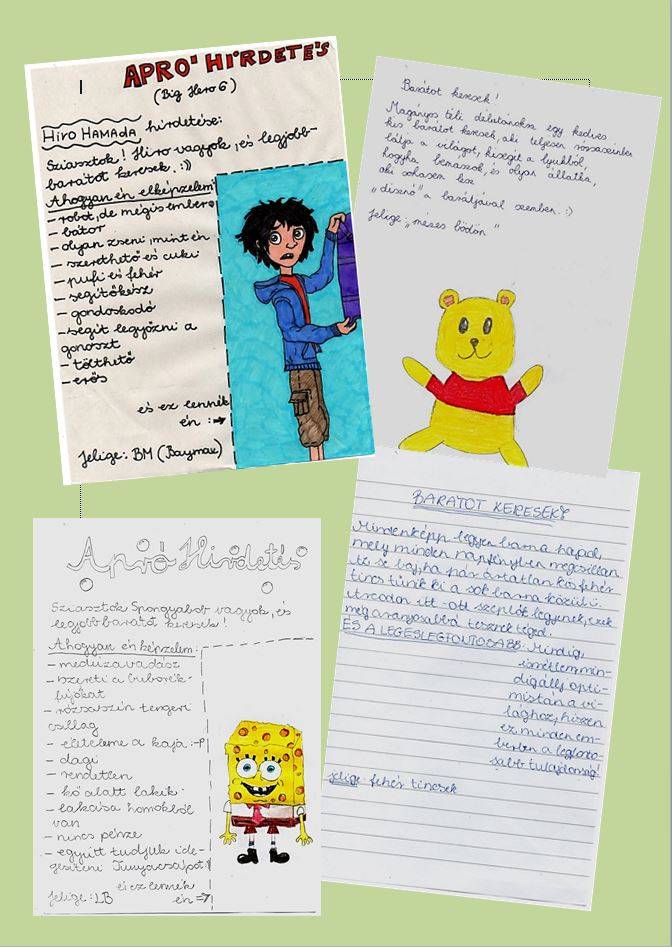 APRÓ HIRDETÉS
(Big Hero 6)
Hiro HAMAda hirdetése:
Sziasztok! Hiro vagyok, és legjobb-
barátot keresek. :))
Ahogyan én elképzelem:
- robot, de mégis emberi
- bátor
- olyan zseni, mint én
- szerethető és cuki
- pufi és fehér
- segítőkész
- gondoskodó
- segít legyőzni a
gonoszt
- tölthető
- erős
és ez lennék
én :
Jelige: BM (Baymax)
Barátot keresek!
Magányos téli délutánokra egy kedves
kis barátot keresek, aki teljesen rózsaszínben
látja a világot, kisegít a lyukból,
hogyha beszorulok, és olyan állatka,
aki sohasem lesz
„disznó" a barátjával szemben. :)
Jelige: „mézes bödön"
Apró Hirdetés
Sziasztok Spongyabob vagyok, és
legjobb barátot keresek!
Ahogyan én képzelem:
- medúzavadász
- szereti a buborék-
fújókat
- rózsaszín tengeri
csillag
- életeleme a kaja :-P
- dagi
- rendetlen
- kő alatt lakik
- lakása homokból
van
- nincs pénze
- együtt tudjuk ide-
gesíteni Tunyacsápot!
és ez lennék
én =>
Jelige: LB
BARÁTOT KERESEK!
Mindenképp legyen barna hajad,
mely minden napfényben megcsillan.
De se baj, ha pár ártatlan kis fehér
tincs tűnik ki a sok barna közül.
Arcodon itt-ott szeplők legyenek, ezek
még aranyosabbá tesznek téged.
ÉS A LEGESLEGFONTOSABB: Mindig,
ismétlem min-
dig állj opti-
mistán a vi-
lághoz, hiszen
ez minden em-
berben a legfonto-
sabb tulajdonság!
Jelige: fehér tincsek